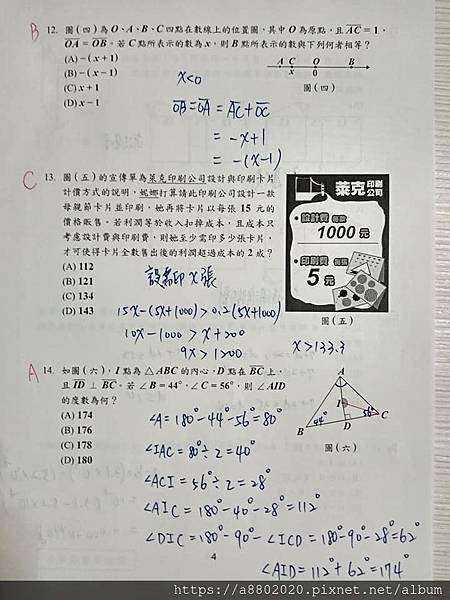 B 12. 圖(四)為 O、A、B、C 四點在數線上的位置圖,其中 O 為原點,且 AC = 1,
OA = OB。若 C 點所表示的數為 x,則 B 點所表示的數與下列何者相等?
(A) -(x + 1)
(B) -(x - 1)
(C) x + 1
(D) x - 1
A C O B
x 0
圖(四)
x<0
OB = OA = AC + OC
= -x+1
= -(x-1)
C 13. 圖(五)的宣傳單為萊克印刷公司設計與印刷卡片
計價方式的說明,妮娜打算請此印刷公司設計一款
母親節卡片並印刷,她再將卡片以每張 15 元的
價格販售。若利潤等於收入扣掉成本,且成本只
考慮設計費與印刷費,則她至少需印多少張卡片,
才可使得卡片全數售出後的利潤超過成本的 2 成?
(A) 112
(B) 121
(C) 134
(D) 143
萊克印刷公司
設計費 每款
1000 元
印刷費 每張
5 元
圖(五)
設需印 x 張
15x-(5x+1000) > 0.2(5x+1000)
10x-1000 > x+200
9x > 1200
x > 133.3
A 14. 如圖(六),I 點為 △ABC 的內心,D 點在 BC 上,
且 ID ⊥ BC。若 ∠B = 44°,∠C = 56°,則 ∠AID
的度數為何?
(A) 174
(B) 176
(C) 178
(D) 180
A
I
B 44° D 56° C
圖(六)
∠A = 180°-44°-56° = 80°
∠IAC = 80°÷2 = 40°
∠ACI = 56°÷2 = 28°
∠AIC = 180°-40°-28° = 112°
∠DIC = 180°-90°-∠ICD = 180°-90°-28° = 62°
∠AID = 112°+62° = 174°
4
https://a8802020.pixnet.net/album